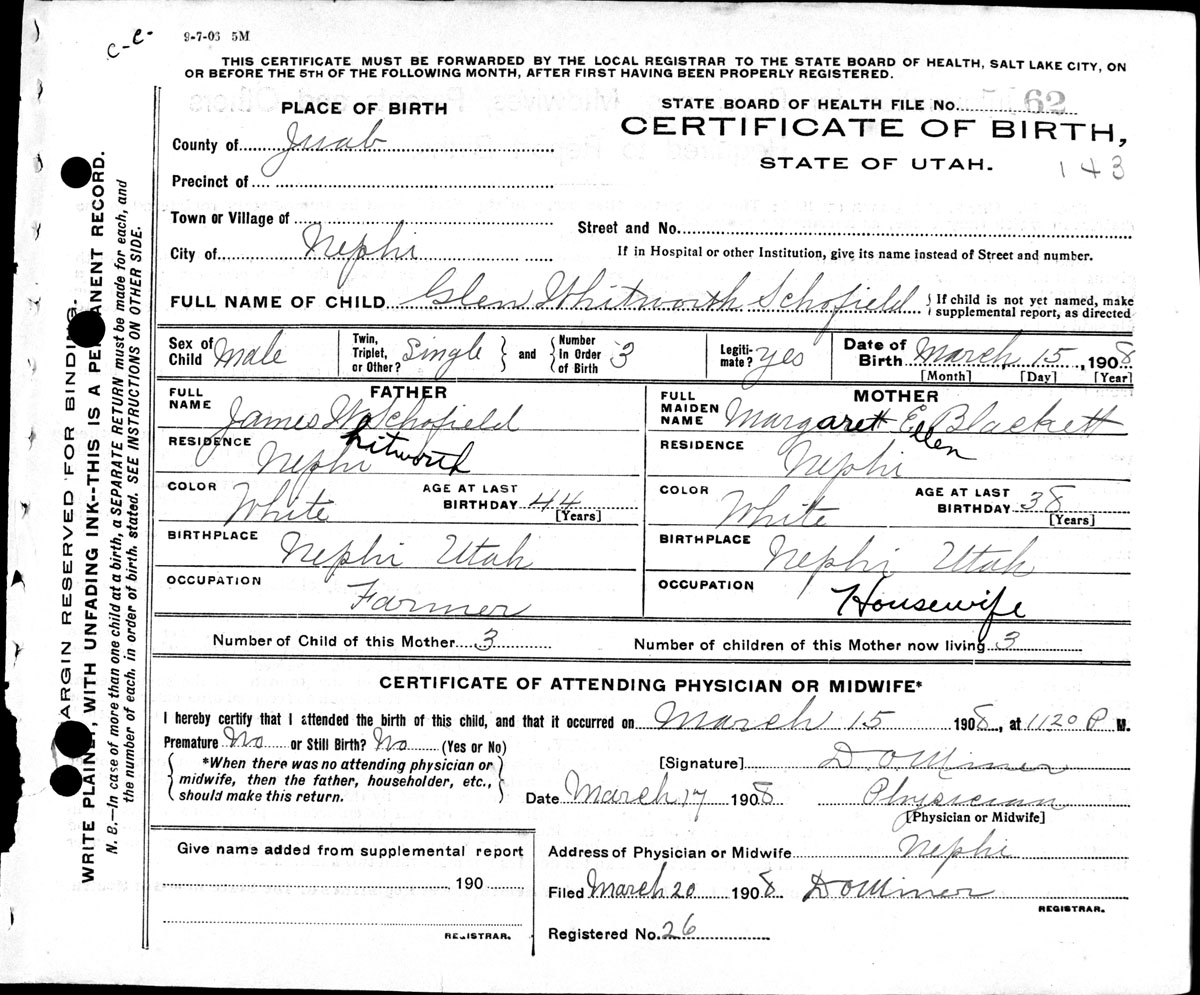 C-C-
9-7-06 5M
THIS CERTIFICATE MUST BE FORWARDED BY THE LOCAL REGISTRAR TO THE STATE BOARD OF HEALTH, SALT LAKE CITY, ON
OR BEFORE THE 5TH OF THE FOLLOWING MONTH, AFTER FIRST HAVING BEEN PROPERLY REGISTERED.
PLACE OF BIRTH
STATE BOARD OF HEALTH FILE NO. 62
CERTIFICATE OF BIRTH,
STATE OF UTAH.
143
County of Juab
Precinct of
Town or Village of
Street and No.
City of Nephi
If in Hospital or other Institution, give its name instead of Street and number.
FULL NAME OF CHILD Glen Whitworth Schofield { If child is not yet named, make
supplemental report, as directed
Sex of Child Male Twin, Triplet, or Other? Single } and { Number In Order of Birth 3 Legitimate? yes Date of Birth March 15, 1908
[Month] [Day] [Year]
FATHER
FULL NAME James W Schofield
hitworth
RESIDENCE Nephi
COLOR White AGE AT LAST BIRTHDAY 44 [Years]
BIRTHPLACE Nephi Utah
OCCUPATION Farmer
MOTHER
FULL MAIDEN NAME Margarett E Blackett
llen
RESIDENCE Nephi
COLOR White AGE AT LAST BIRTHDAY 38 [Years]
BIRTHPLACE Nephi Utah
OCCUPATION Housewife
Number of Child of this Mother 3 Number of children of this Mother now living 3
CERTIFICATE OF ATTENDING PHYSICIAN OR MIDWIFE*
I hereby certify that I attended the birth of this child, and that it occurred on March 15 1908, at 1120 P M.
Premature No or Still Birth? No (Yes or No)
{ *When there was no attending physician or
midwife, then the father, householder, etc.,
should make this return. }
[Signature] D O Miner
Date March 17 1908 Physician
[Physician or Midwife]
Give name added from supplemental report
190
REGISTRAR.
Address of Physician or Midwife Nephi
Filed March 20 1908 D O Miner
REGISTRAR.
Registered No. 26
MARGIN RESERVED FOR BINDING.
WRITE PLAINLY, WITH UNFADING INK--THIS IS A PERMANENT RECORD.
N. B.—In case of more than one child at a birth, a SEPARATE RETURN must be made for each, and
the number of each, in order of birth, stated. SEE INSTRUCTIONS ON OTHER SIDE.